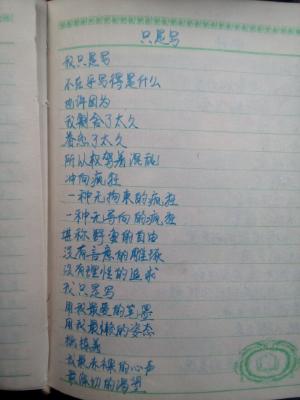 只是写
我只是写
不在乎写得是什么
也许因为
我割舍了太久
眷恋了太久
所以权驾着混乱
冲向疯狂
一种无拘束的疯狂
一种无导向的疯狂
堪称野蛮的自由
没有言意的雕琢
没有理性的追求
我只是写
用我最爱的笔墨
用我最懒的姿态
描摸着
我最赤裸的心声
最深切的渴望